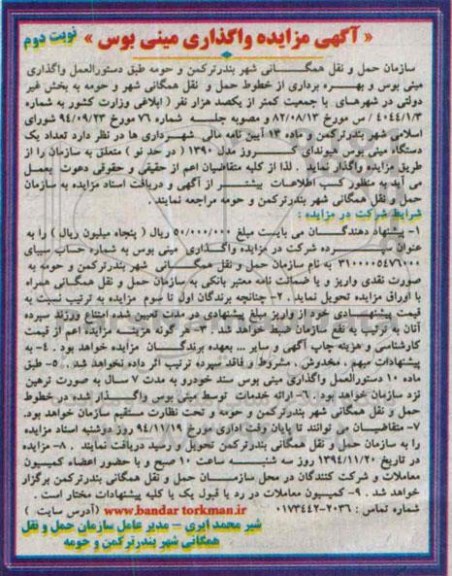 نوبت دوم
« آگهی مزایده واگذاری مینی بوس »
سازمان حمل و نقل همگانی شهر بندرترکمن و حومه طبق دستورالعمل واگذاری
مینی بوس و بهره برداری از خطوط حمل و نقل همگانی شهر و حومه به بخش غیر
دولتی در شهرهای با جمعیت کمتر از یکصد هزار نفر ( ابلاغی وزارت کشور به شماره
۴۰۴۴/۱/۳ / س مورخ ۸۲/۰۸/۱۳ و مصوبه جلسه شماره ۷۶ مورخ ۹۴/۰۹/۲۳ شورای
اسلامی شهر بندرترکمن و ماده ۱۳ آیین نامه مالی شهرداری ها در نظر دارد تعداد یک
دستگاه مینی بوس هیوندای روز مدل ۱۳۹۰ ( در حد نو ) متعلق به سازمان را از
طریق مزایده واگذار نماید . لذا از کلیه متقاضیان اعم از حقیقی و حقوقی دعوت بعمل
می آید به منظور کسب اطلاعات بیشتر از آگهی و دریافت اسناد مزایده به سازمان
حمل و نقل همگانی شهر بندرترکمن و حومه مراجعه نمایند .
شرایط شرکت در مزایده :
۱- پیشنهاد دهندگان می بایست مبلغ ۵۰/۰۰۰/۰۰۰ ریال ( پنجاه میلیون ریال ) را به
عنوان سپرده شرکت در مزایده واگذاری مینی بوس به شماره حساب سیبای
۳۱۰۰۰۰۵۴۷۶۰۰۰ به نام سازمان حمل و نقل همگانی شهر بندرترکمن و حومه به
صورت نقدی واریز و یا ضمانت نامه معتبر بانکی به سازمان حمل و نقل همگانی همراه
با اوراق مزایده تحویل نماید . ۲- چنانچه برندگان اول تا سوم مزایده به ترتیب نسبت به
قیمت پیشنهادی خود از واریز مبلغ پیشنهادی در مدت تعیین شده امتناع ورزند سپرده
آنان به ترتیب به نفع سازمان ضبط خواهد شد . ۳- هر گونه هزینه مزایده اعم از قیمت
کارشناسی و هزینه چاپ آگهی و سایر ... بعهده برندگان مزایده خواهد بود . ۴- به
پیشنهادات مبهم ، مخدوش ، مشروط و فاقد سپرده ترتیب اثر داده نخواهد شد . ۵- طبق
ماده ۱۰ دستورالعمل واگذاری مینی بوس سند خودرو به مدت ۷ سال به صورت ترهین
نزد سازمان خواهد بود . ۶- ارائه خدمات توسط مینی بوس واگذار شده در خطوط
حمل و نقل همگانی شهر بندرترکمن و حومه و تحت نظارت مستقیم سازمان خواهد بود.
۷- متقاضیان می توانند تا پایان وقت اداری مورخ ۹۴/۱۱/۱۹ روز دوشنبه اسناد مزایده
را به سازمان حمل و نقل همگانی بندرترکمن تحویل و رسید دریافت نمایند . ۸- مزایده
در تاریخ ۱۳۹۴/۱۱/۲۰ روز سه شنبه ساعت ۱۰ صبح و با حضور اعضاء کمیسیون
معاملات و شرکت کنندگان در محل سازمان حمل و نقل همگانی بندرترکمن برگزار
خواهد شد . ۹- کمیسیون معاملات در رد یا قبول یک یا کلیه پیشنهادات مختار است .
شماره تماس : ۲۰۳۶-۰۱۷۳۴۴۲ www.bandar torkman.ir (آدرس سایت )
شیر محمد ایری – مدیر عامل سازمان حمل و نقل
همگانی شهر بندرترکمن و حومه